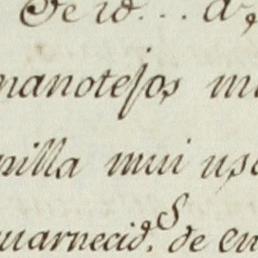 De id. . . . a
manotejos m
pilla mui usa
uarnecid.s de en